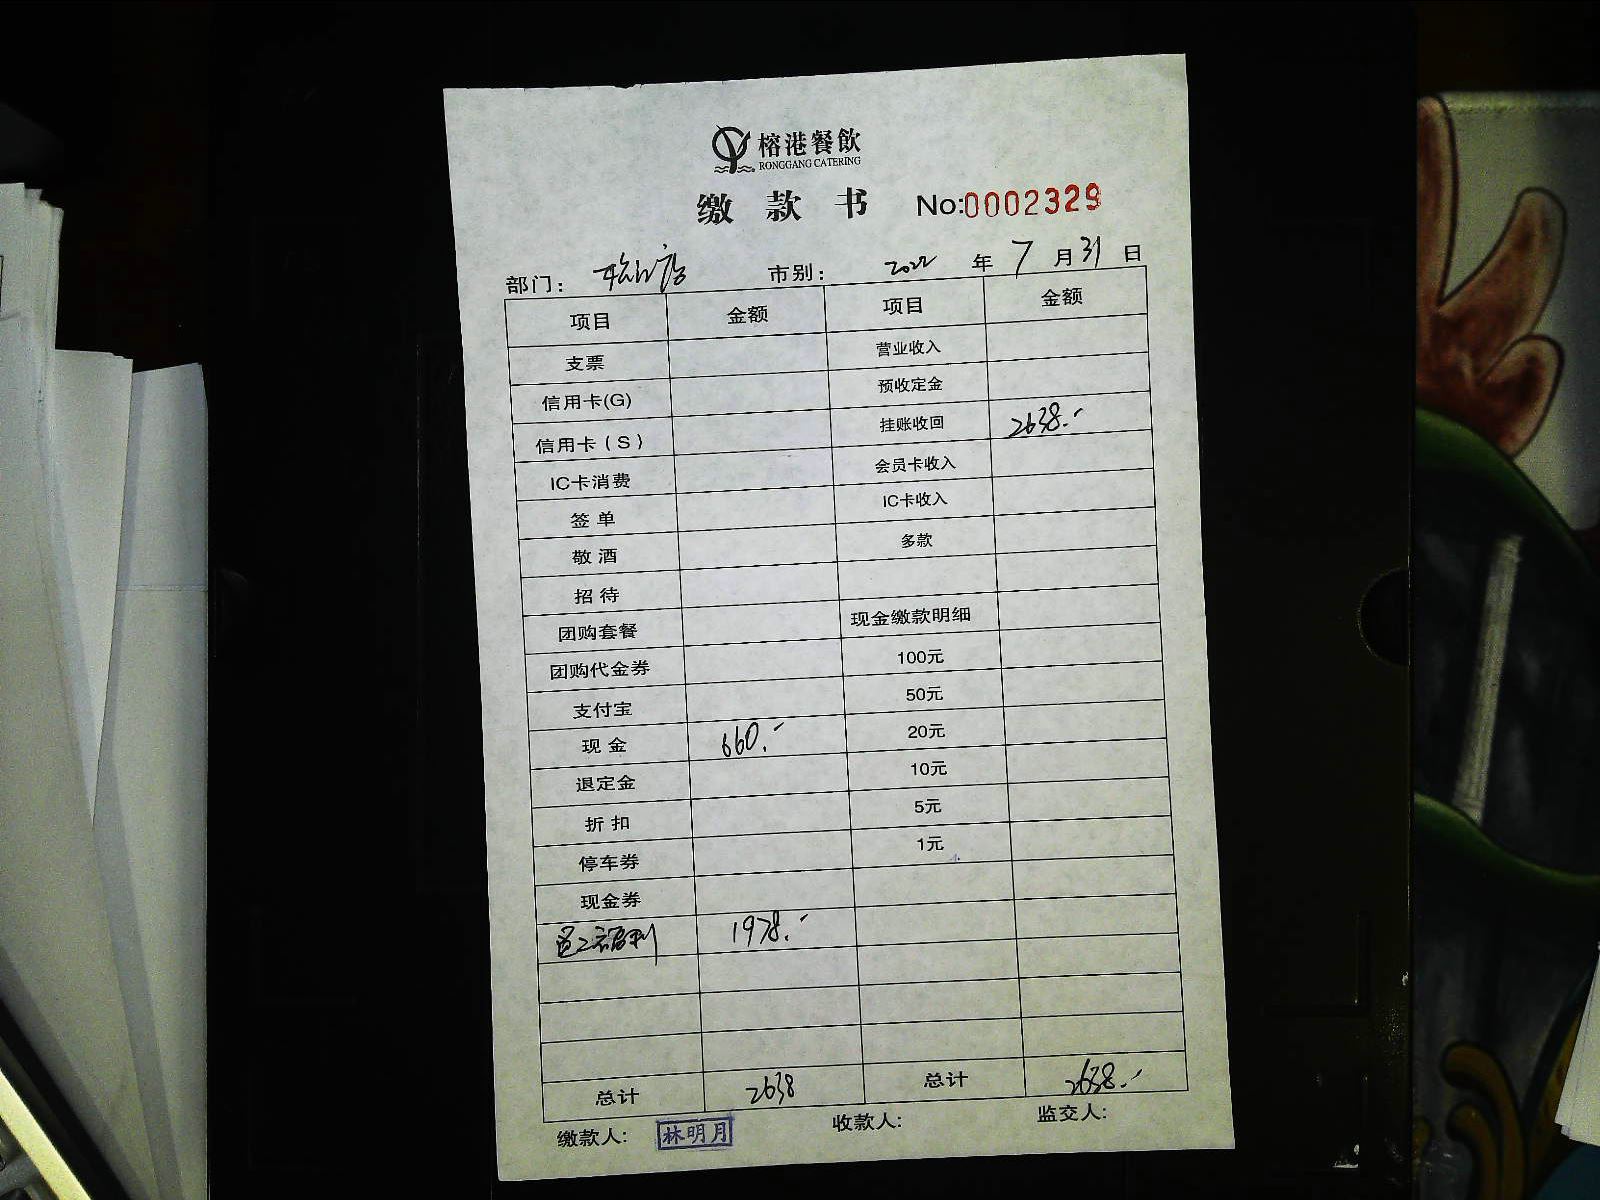 榕港餐飲
RONGGANG CATERING
缴 款 书 No:0002329
部门： 店 市别： 2022 年 7 月 31 日
项目 金额 项目 金额
支票 营业收入
信用卡(G) 预收定金
信用卡（S） 挂账收回 2638.-
IC卡消费 会员卡收入
签 单 IC卡收入
敬 酒 多款
招 待
团购套餐 现金缴款明细
团购代金券 100元
支付宝 50元
现 金 660.- 20元
退定金 10元
折 扣 5元
停车券 1元
现金券
员工福利 1978.-
总计 2638 总计 2638.-
缴款人: 林明月 收款人: 监交人: